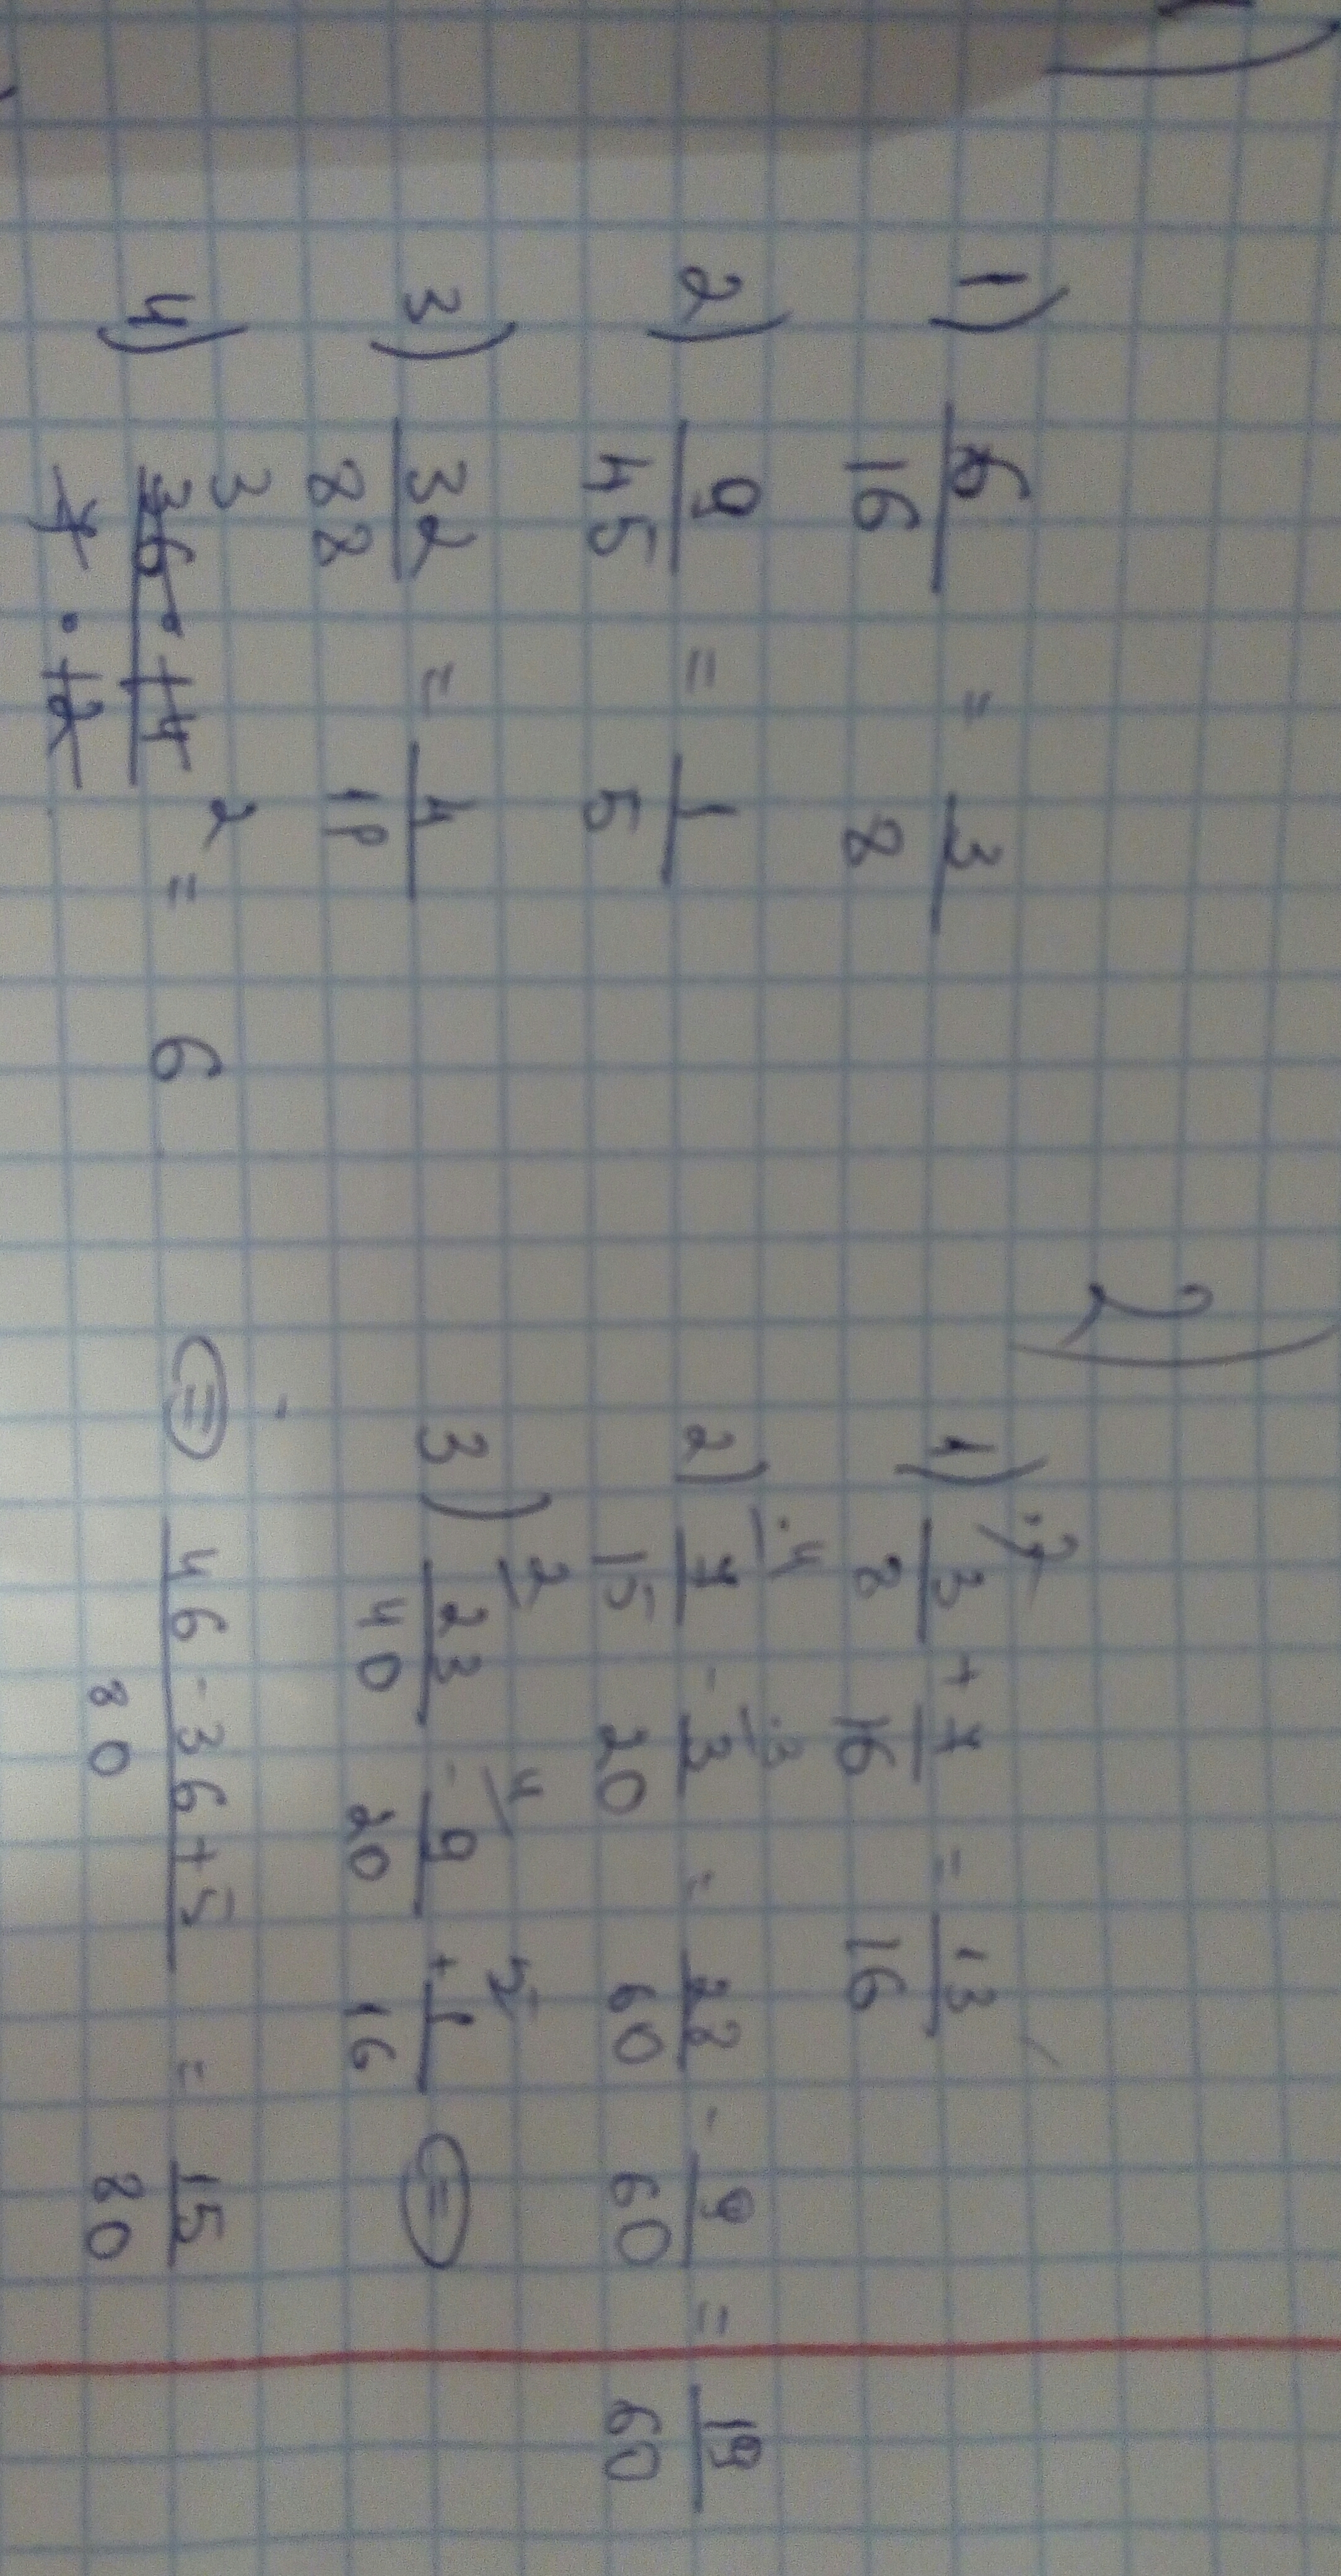 1)
1) 6/16 = 3/8
2) 9/45 = 1/5
3) 32/88 = 4/11
4) 36 · 14 / 7 · 12 = 6
3 2
2)
1) 3/8 + 7/16 = 13/16
2) 7/15 - 3/20 = 28/60 - 9/60 = 19/60
·4 ·3
3) 23/40 - 9/20 + 1/16 =
2 4 5
= 46 - 36 + 5 / 80 = 15/80